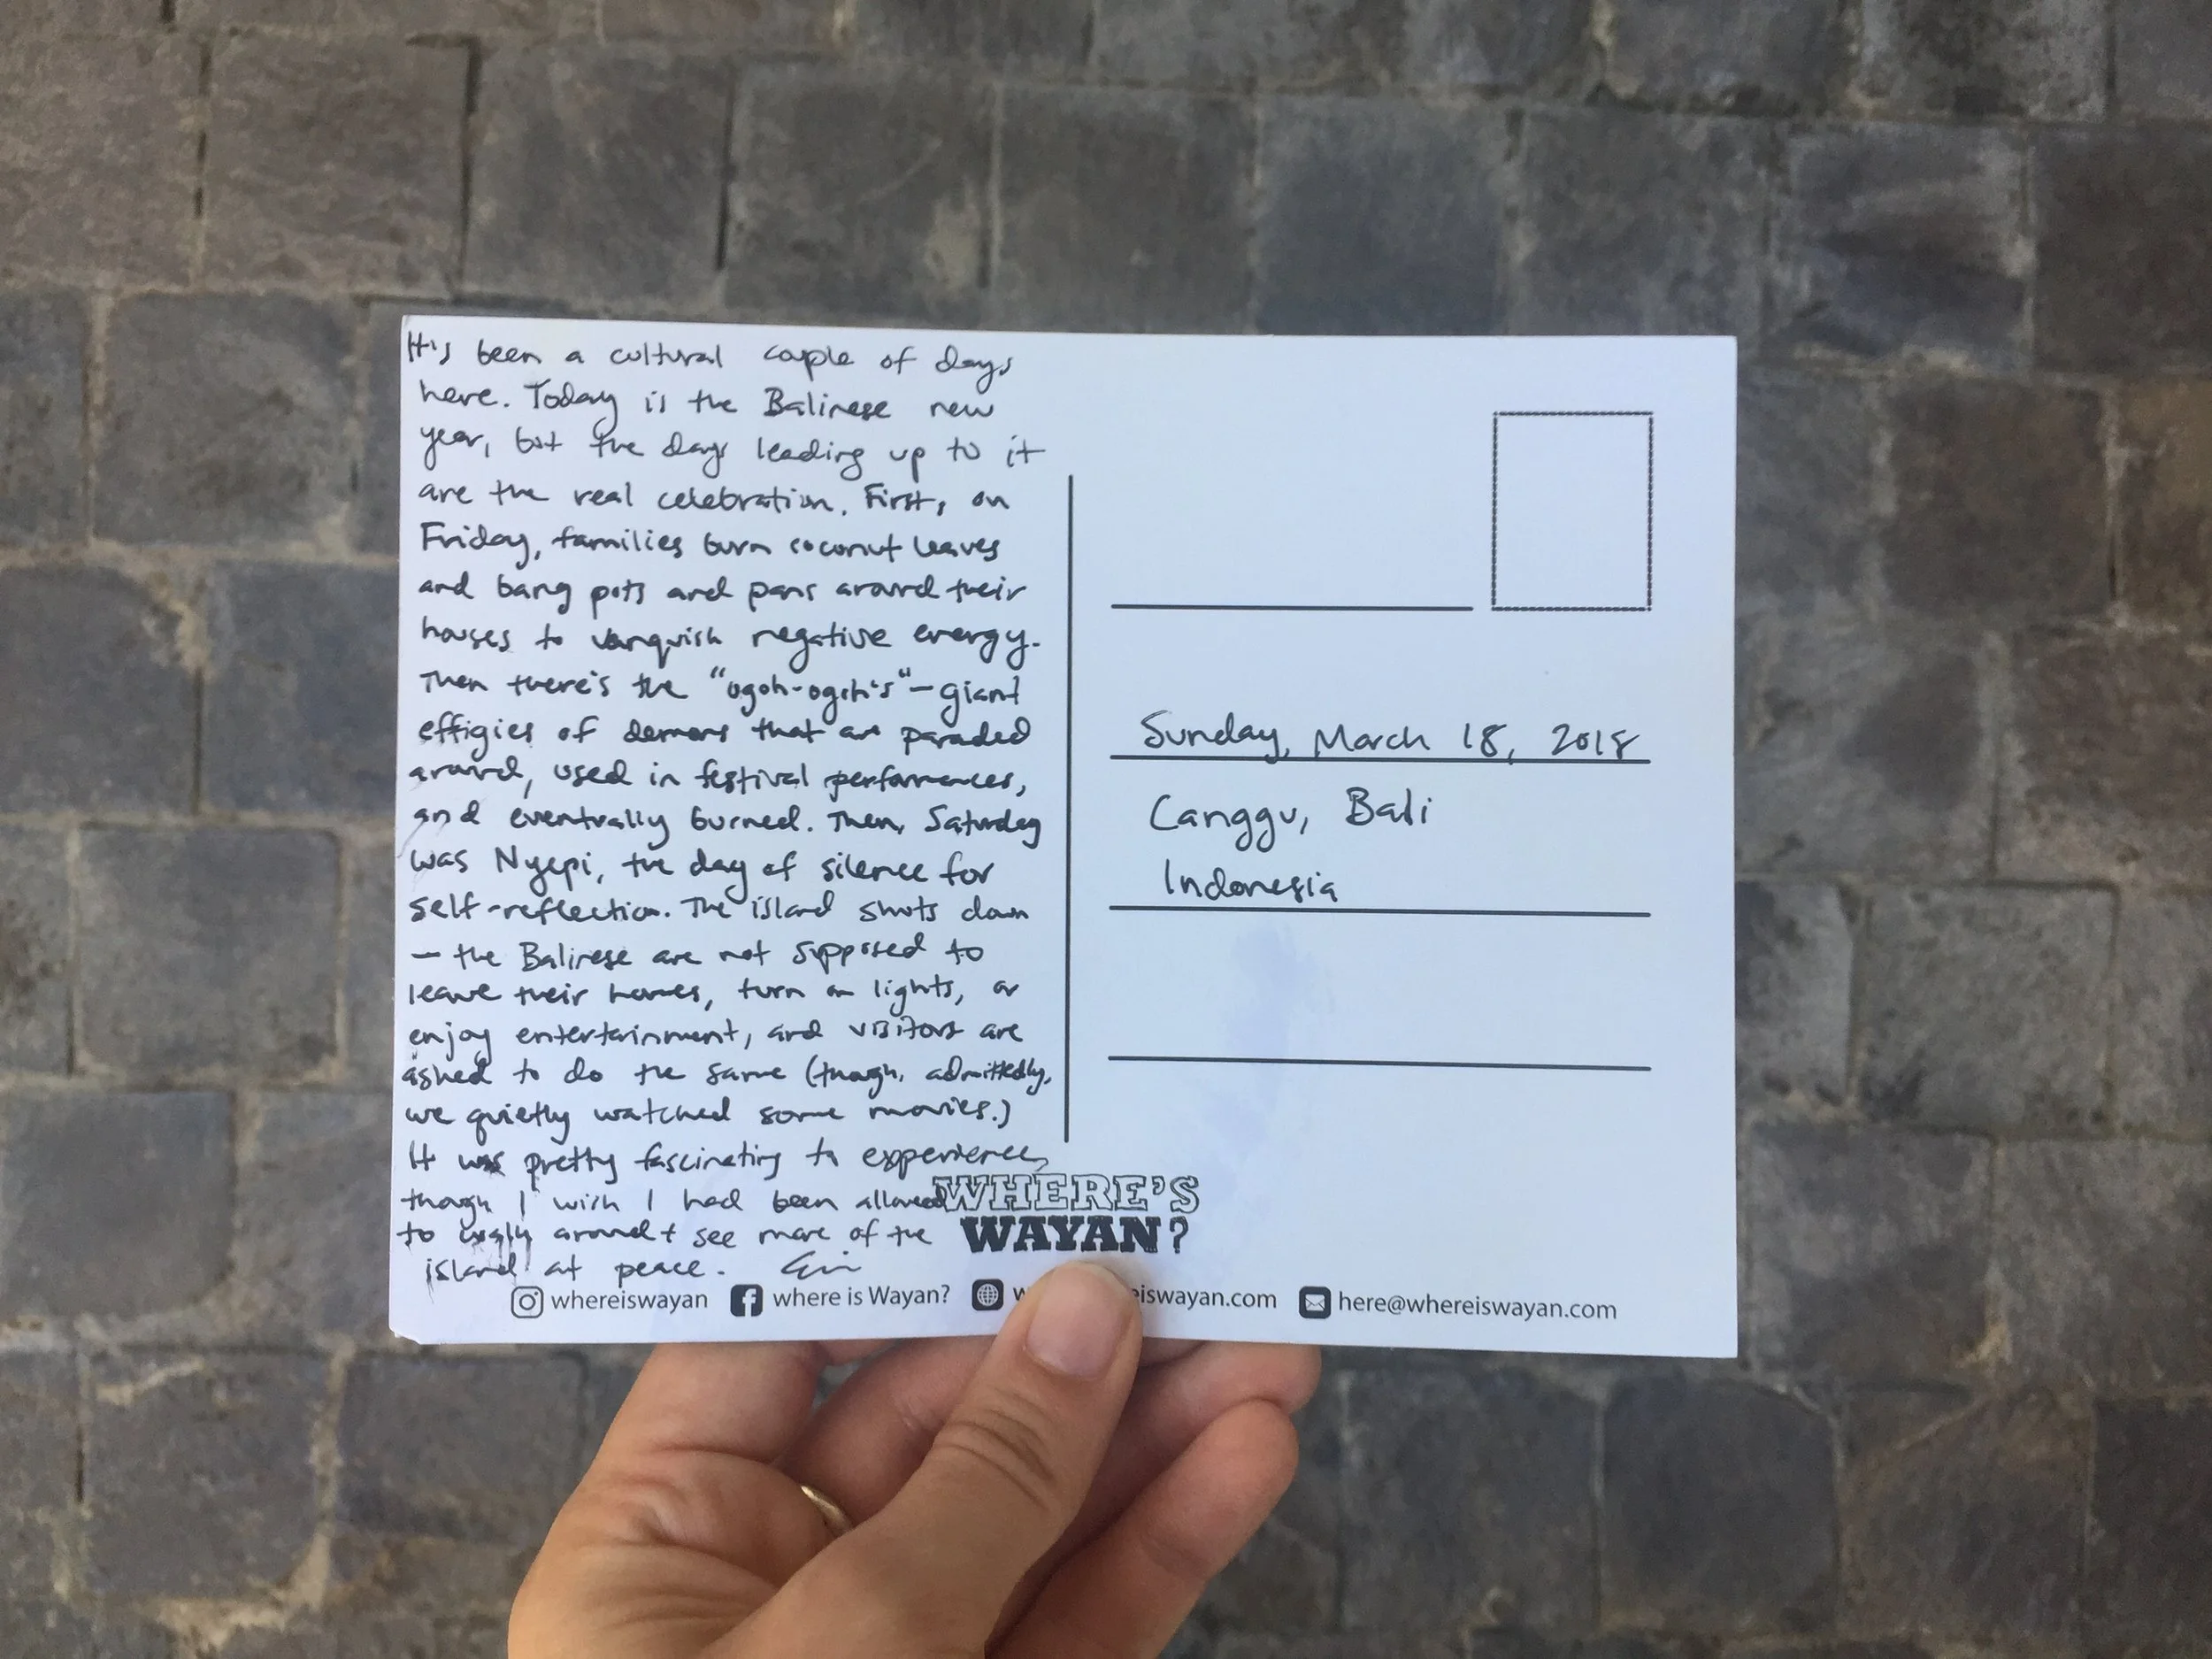 It's been a cultural couple of days
here. Today is the Balinese new
year, but the days leading up to it
are the real celebration. First, on
Friday, families burn coconut leaves
and bang pots and pans around their
houses to vanquish negative energy.
Then there's the "ogoh-ogoh's" — giant
effigies of demons that are paraded
around, used in festival performances,
and eventually burned. Then, Saturday
was Nyepi, the day of silence for
self-reflection. The island shuts down
— the Balinese are not supposed to
leave their homes, turn on lights, or
enjoy entertainment, and visitors are
asked to do the same (though, admittedly,
we quietly watched some movies.)
It was pretty fascinating to experience,
though I wish I had been allowed
to walk around + see more of the
island at peace.
Sunday, March 18, 2018
Canggu, Bali
Indonesia
WHERE'S
WAYAN?
whereiswayan
where is Wayan?
eiswayan.com
here@whereiswayan.com